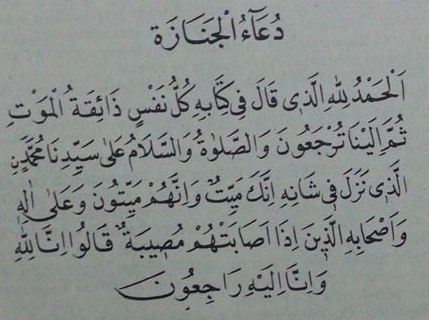 دُعَآءُ الْجَنَازَةِ
اَلْحَمْدُ لِلّٰهِ الَّذِى قَالَ فِى كِتَابِهِ كُلُّ نَفْسٍ ذَائِقَةُ الْمَوْتِ
ثُمَّ اِلَيْنَا تُرْجَعُونَ وَالصَّلٰوةُ وَالسَّلَامُ عَلٰى سَيِّدِنَا مُحَمَّدٍ
الَّذِى نَزَلَ فِى شَانِهِ اِنَّكَ مَيِّتٌ وَاِنَّهُمْ مَيِّتُونَ وَعَلٰى اٰلِهِ
وَاَصْحَابِهِ الَّذِينَ اِذَا اَصَابَتْهُمْ مُصِيبَةٌ قَالُوا اِنَّا لِلّٰهِ
وَاِنَّا اِلَيْهِ رَاجِعُونَ